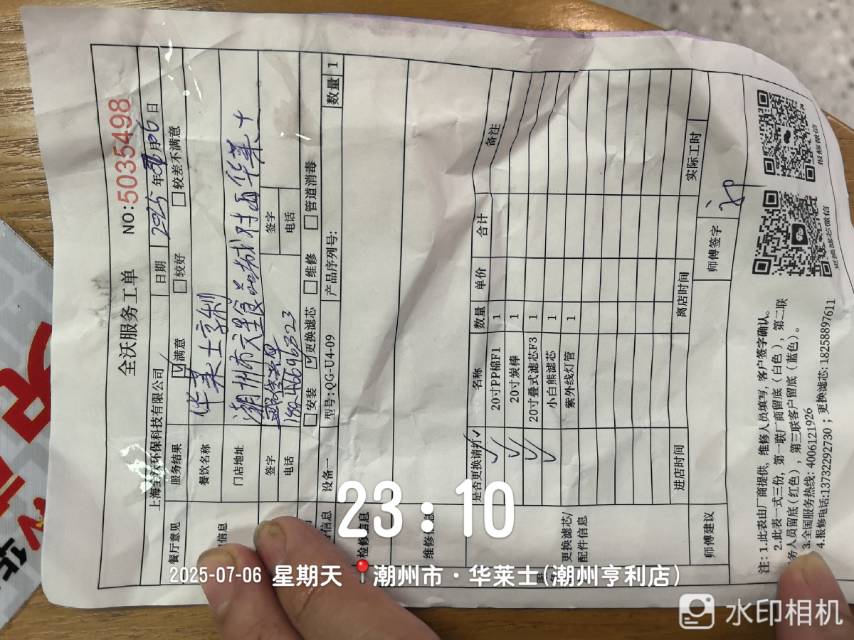 全沃服务工单
NO:5035498
上海全沃环保科技有限公司
日期 2025年 月06日
餐厅意见 服务结果 ☑满意 □较好 □较差不满意
餐饮名称 华莱士亨利
门店地址 潮州市
签字 签字
电话 电话
□安装 ☑更换滤芯 □维修 □管道消毒
设备一 型号:QG-U4-09 产品序列号: 数量 1
检修信息
维修
更换滤芯/配件信息
是否更换请打✓ 名称 数量 单价 合计 备注
✓ 20寸PP棉F1 1
✓ 20寸炭棒 1
✓ 20寸叠式滤芯F3 1
✓ 小白熊滤芯 1
紫外线灯管 1
进店时间 离店时间 实际工时
师傅建议 师傅签字
注:1.此表由厂商提供,维修人员填写,客户签字确认。
2.此表一式三份,第一联厂商留底(白色),第二联
务人员留底(红色),第三联客户留底(蓝色)。
3.全国服务热线:4006121926
4.报修电话:13732292730;更换滤芯:18258897611
更换滤芯微信
报修微信
23:10
2025-07-06 星期天 潮州市·华莱士(潮州亨利店)
水印相机